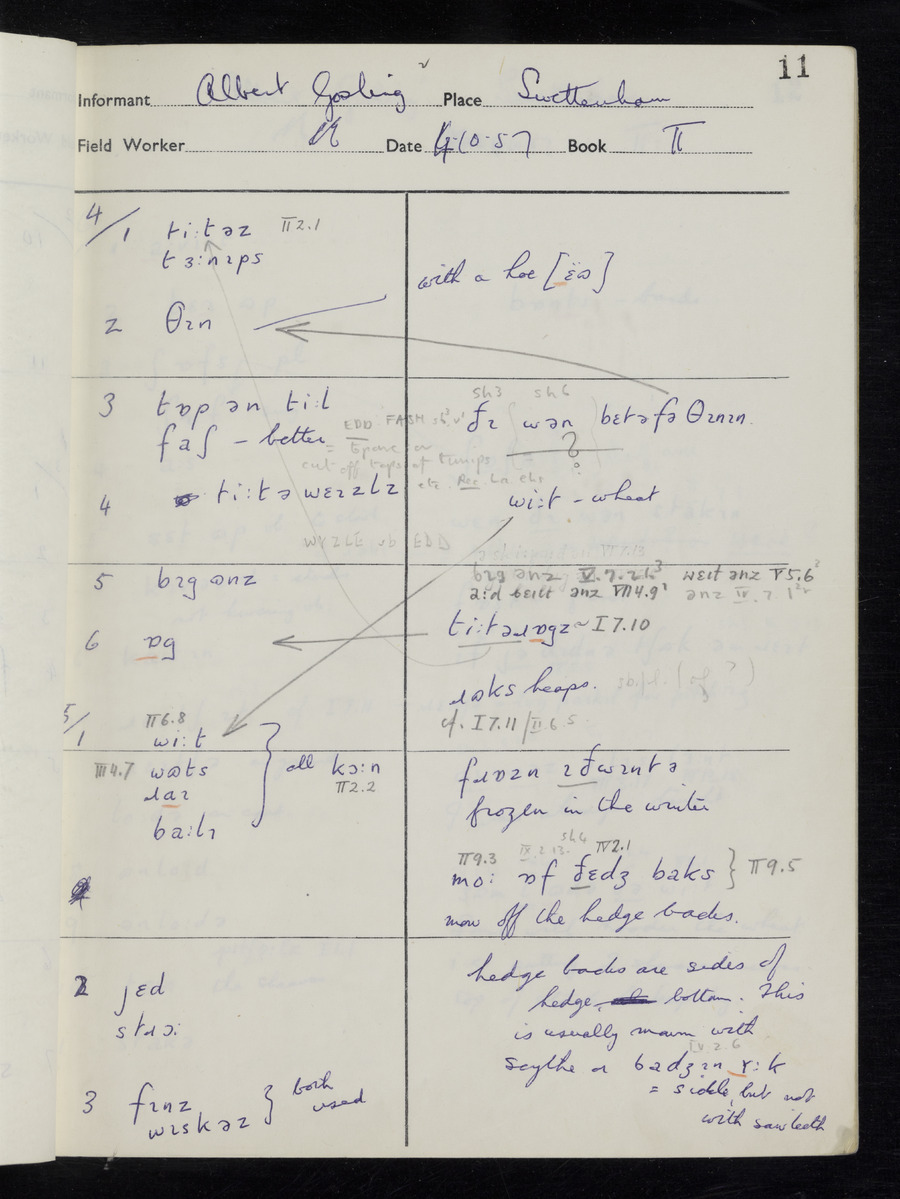 11
Informant Albert Gosling Place Swettenham
Field Worker Date 4-10-57 Book II
4/1 ti:təz II2.1
tɜ:nɪps
with a hoe [ɛ̈ɷ]
2 θɪn
3 tɒp ən ti:l
faʃ – better
EDD FASH sb³, v¹
= to pare or
cut off tops of turnips
etc. Rec. La. Chs
sh3 sh6
ðɪ wən bɛtəfə θɪnɪn.
?
4 ti:tə wɛɪzlz
WYZLE vb EDD
wi:t – wheat
5 bɪg ənz
bɪg ənz V.7.21³ wɛɪt ənz V5.6²
a:d bɛɪlt ənz VII4.9¹ ənz IV.7.1
6 ɒg
ti:təɹɒgz ~ I7.10
ɹɷks heaps.
cf. I7.11/II.6.5
5/1 II6.8
wi:t
III4.7 wɷts
ɹaɪ
ba:lɪ
} all kɔ:n
II2.2
fɹɒzn ɪ ðwɪntə
frozen in the winter
sh4
II9.3 IV2.1
mo: ɒf ðɛdʒ baks } II9.5
mow off the hedge backs.
2 jɛd
stɹɔ:
hedge backs are sides of
hedge, bottom. This
is usually mown with
IV.2.6
scythe or badʒɪn ɤ:k
= sickle, but not
with saw teeth
3 fɪnz
wɪskəz
} both
used